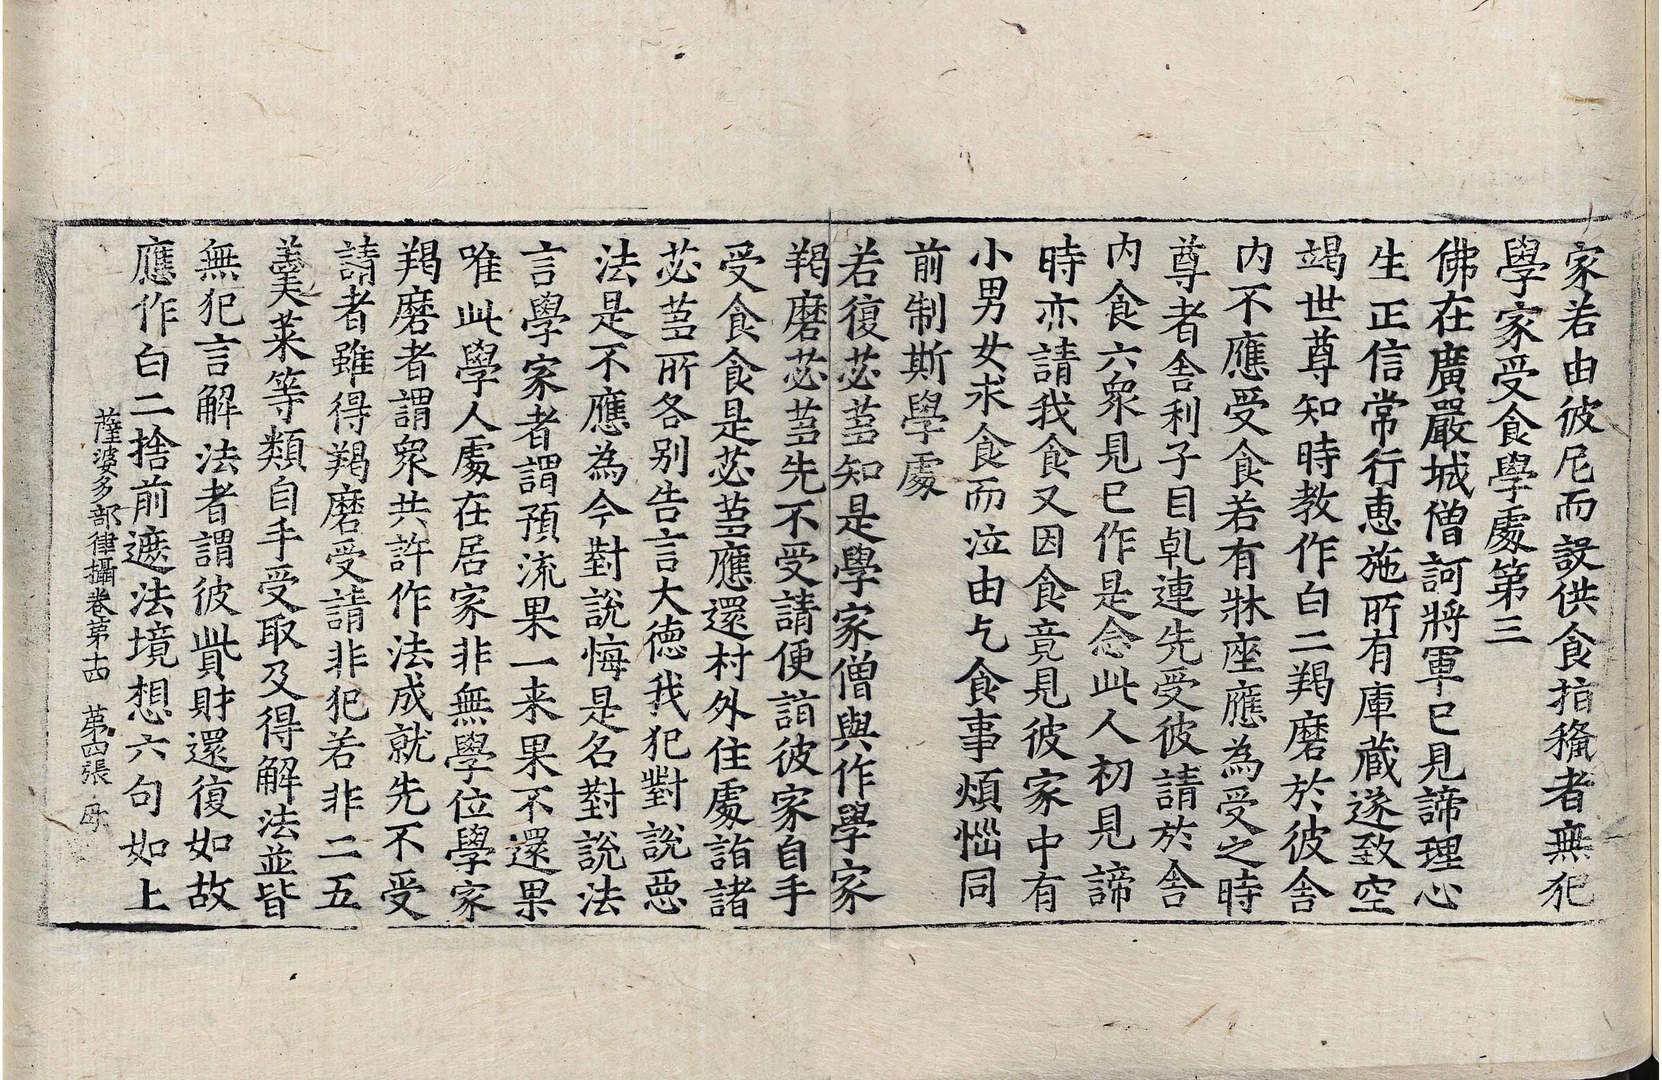 家若由彼尼而設供食指撝者無犯
學家受食學處第三
佛在廣嚴城僧訶將軍已見諦理心
生正信常行恵施所有庫蔵遂致空
竭世尊知時教作白二羯磨於彼舎
内不應受食若有牀座應為受之時
尊者舎利子目乹連先受彼請於舎
内食六衆見已作是念此人初見諦
時亦請我食又因食竟見彼家中有
小男女求食而泣由乞食事煩惱同
前制斯學處
若復苾蒭知是學家僧與作學家
羯磨苾蒭先不受請便詣彼家自手
受食食是苾蒭應還村外住處詣諸
苾蒭所各别告言大德我犯對說惡
法是不應為今對說悔是名對說法
言學家者謂預流果一来果不還果
唯此學人處在居家非無學位學家
羯磨者謂衆共許作法成就先不受
請者雖得羯磨受請非犯若非二五
羹菜等類自手受取及得解法並皆
無犯言解法者謂彼貲財還復如故
應作白二捨前遮法境想六句如上
薩婆多部律攝卷第十四 第四張 毋